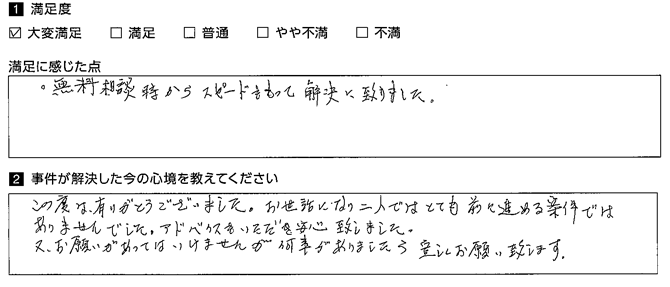 1 満足度
☑ 大変満足 □ 満足 □ 普通 □ やや不満 □ 不満
満足に感じた点
。無料相談時からスピードをもって解決に致りました。
2 事件が解決した今の心境を教えてください
この度は、有りがとうございました。お世話になり一人ではとても前に進める案件では
ありませんでした。アドバイスをいただき安心致しました。
又、お願いがあってはいけませんが何事がありましたら宜しくお願い致します。